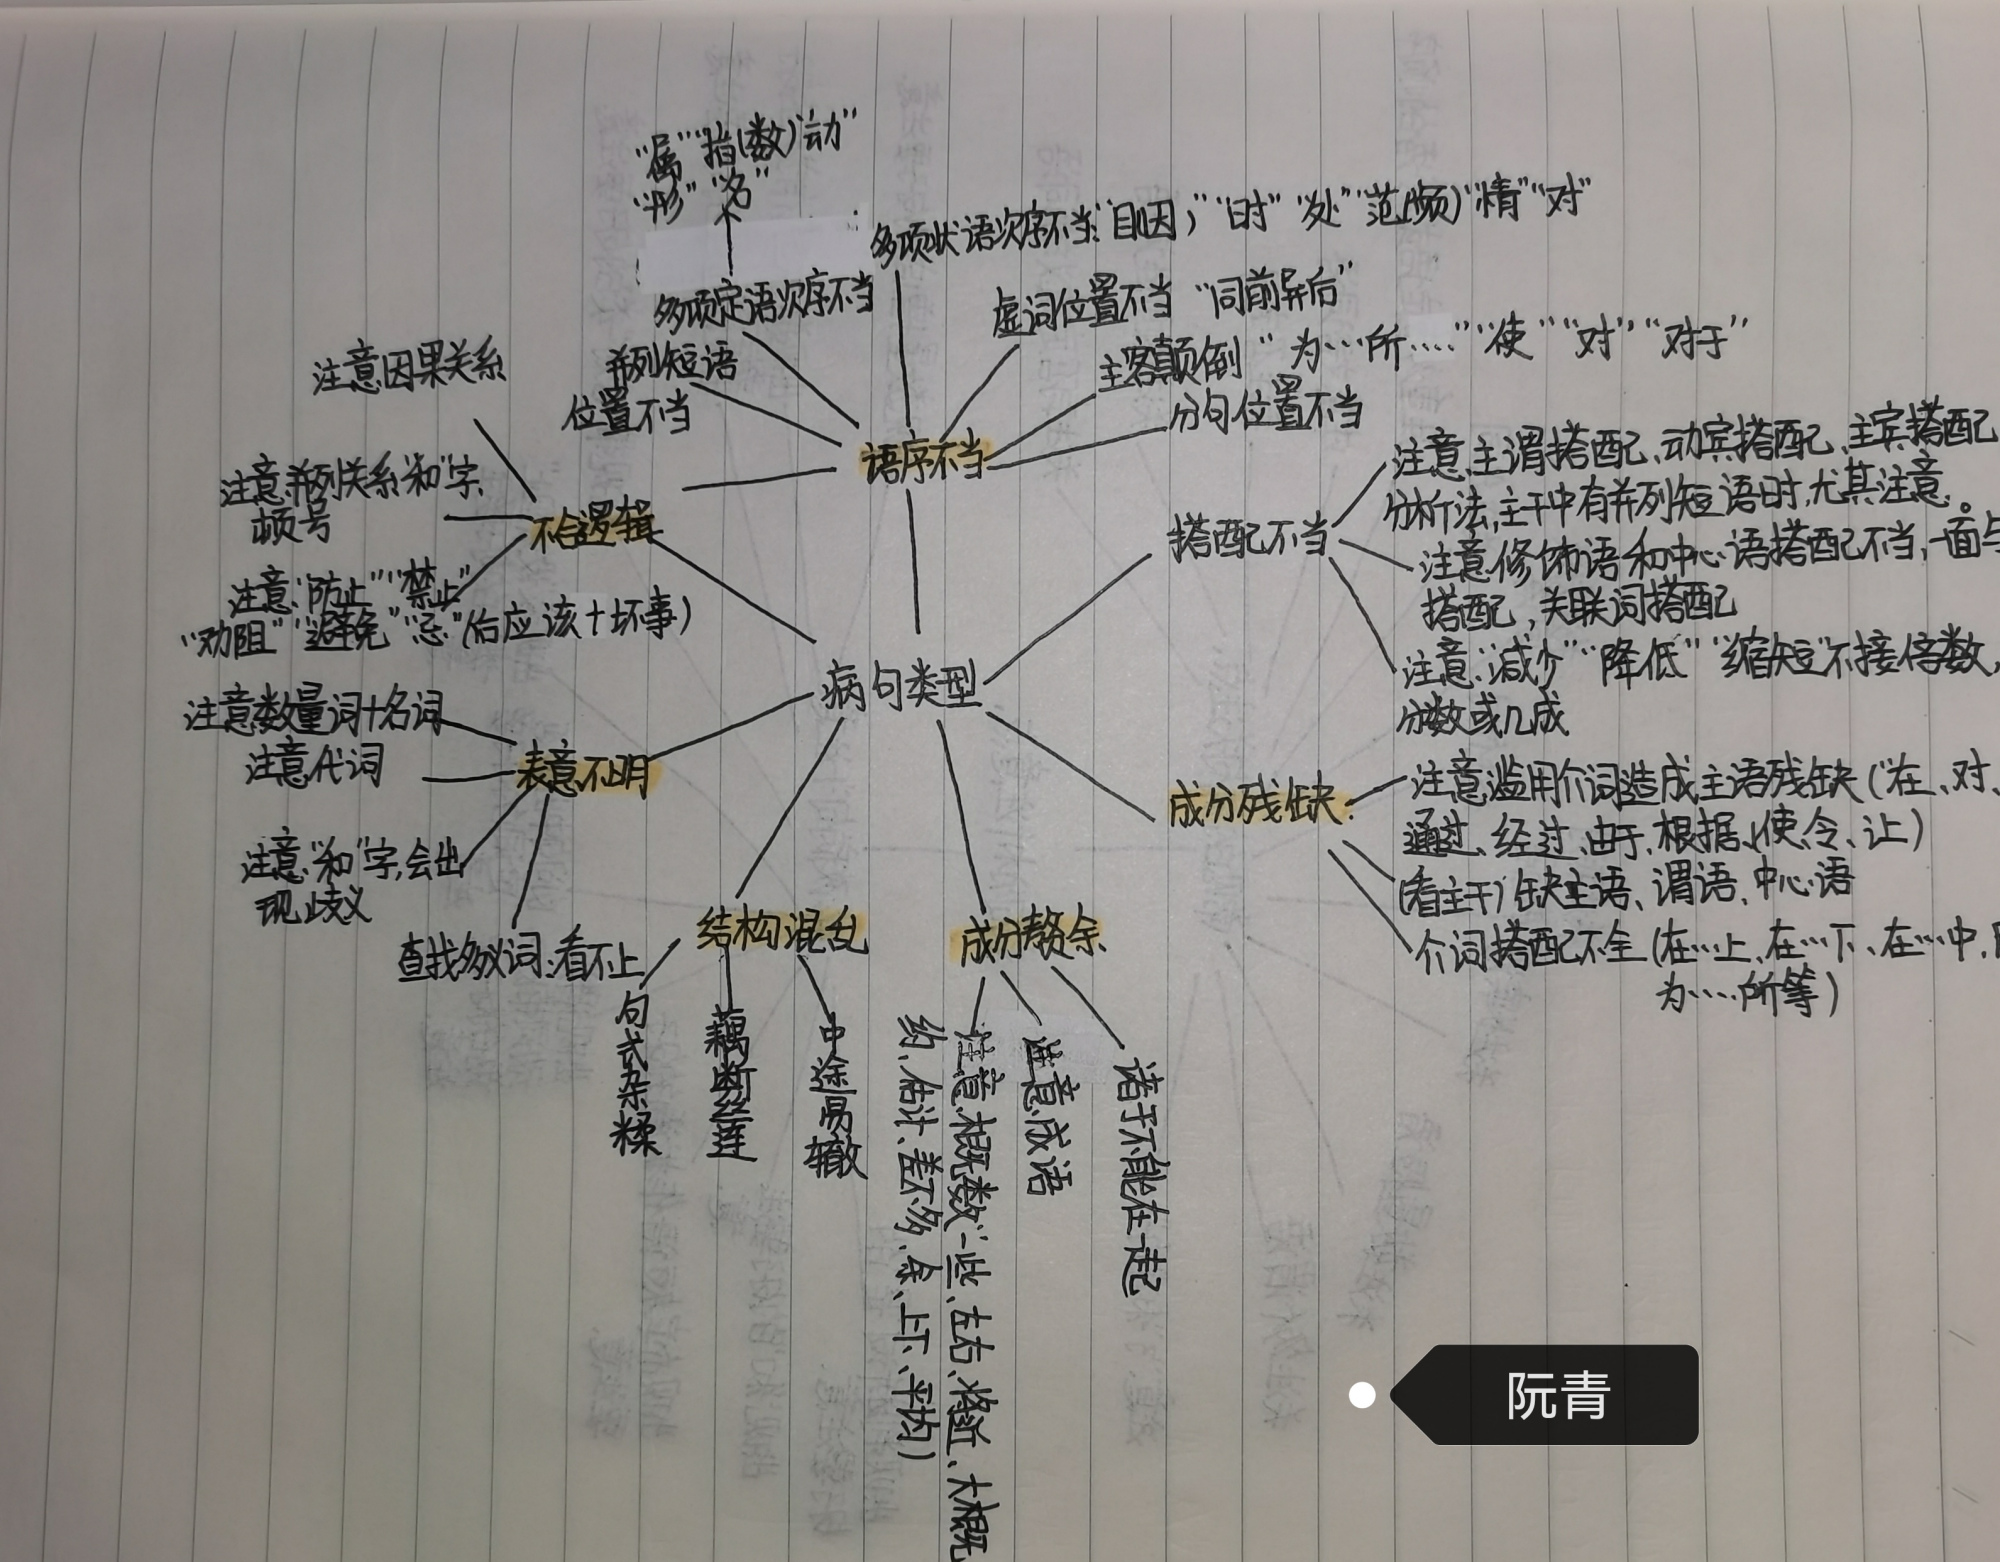 “属”“指(数)“动”
“形”“名”
多项定语次序不当
多项状语次序不当:“目(因)”“时”“处”“范(频)”“情”“对”
虚词位置不当 “同前异后”
主客颠倒 “为…所……”“使”“对”“对于”
分句位置不当
并列短语
位置不当
语序不当
注意因果关系
注意并列关系“和”字、
顿号
不合逻辑
注意“防止”“禁止”
“劝阻”“避免”“忌”(后应该+坏事)
搭配不当
注意主谓搭配、动宾搭配、主宾搭配
分析法,主干中有并列短语时,尤其注意。
注意修饰语和中心语搭配不当,一面与
搭配,关联词搭配
注意“减少”“降低”“缩短”不接倍数,
分数或几成
病句类型
注意数量词+名词
注意代词
表意不明
注意“和”字,会出
现歧义
查找多义词:看不上
成分残缺
注意滥用介词造成主语残缺(在、对、
通过、经过、由于、根据、使、令、让)
(看主干)缺主语、谓语、中心语
介词搭配不全(在…上、在…下、在…中、
为……所等)
结构混乱
句式杂糅
藕断丝连
中途易辙
成分赘余
注意概数“一些、左右、将近、大概
约、估计、差不多、余、上下、平均)
注意成语
诸于不能在一起
阮青